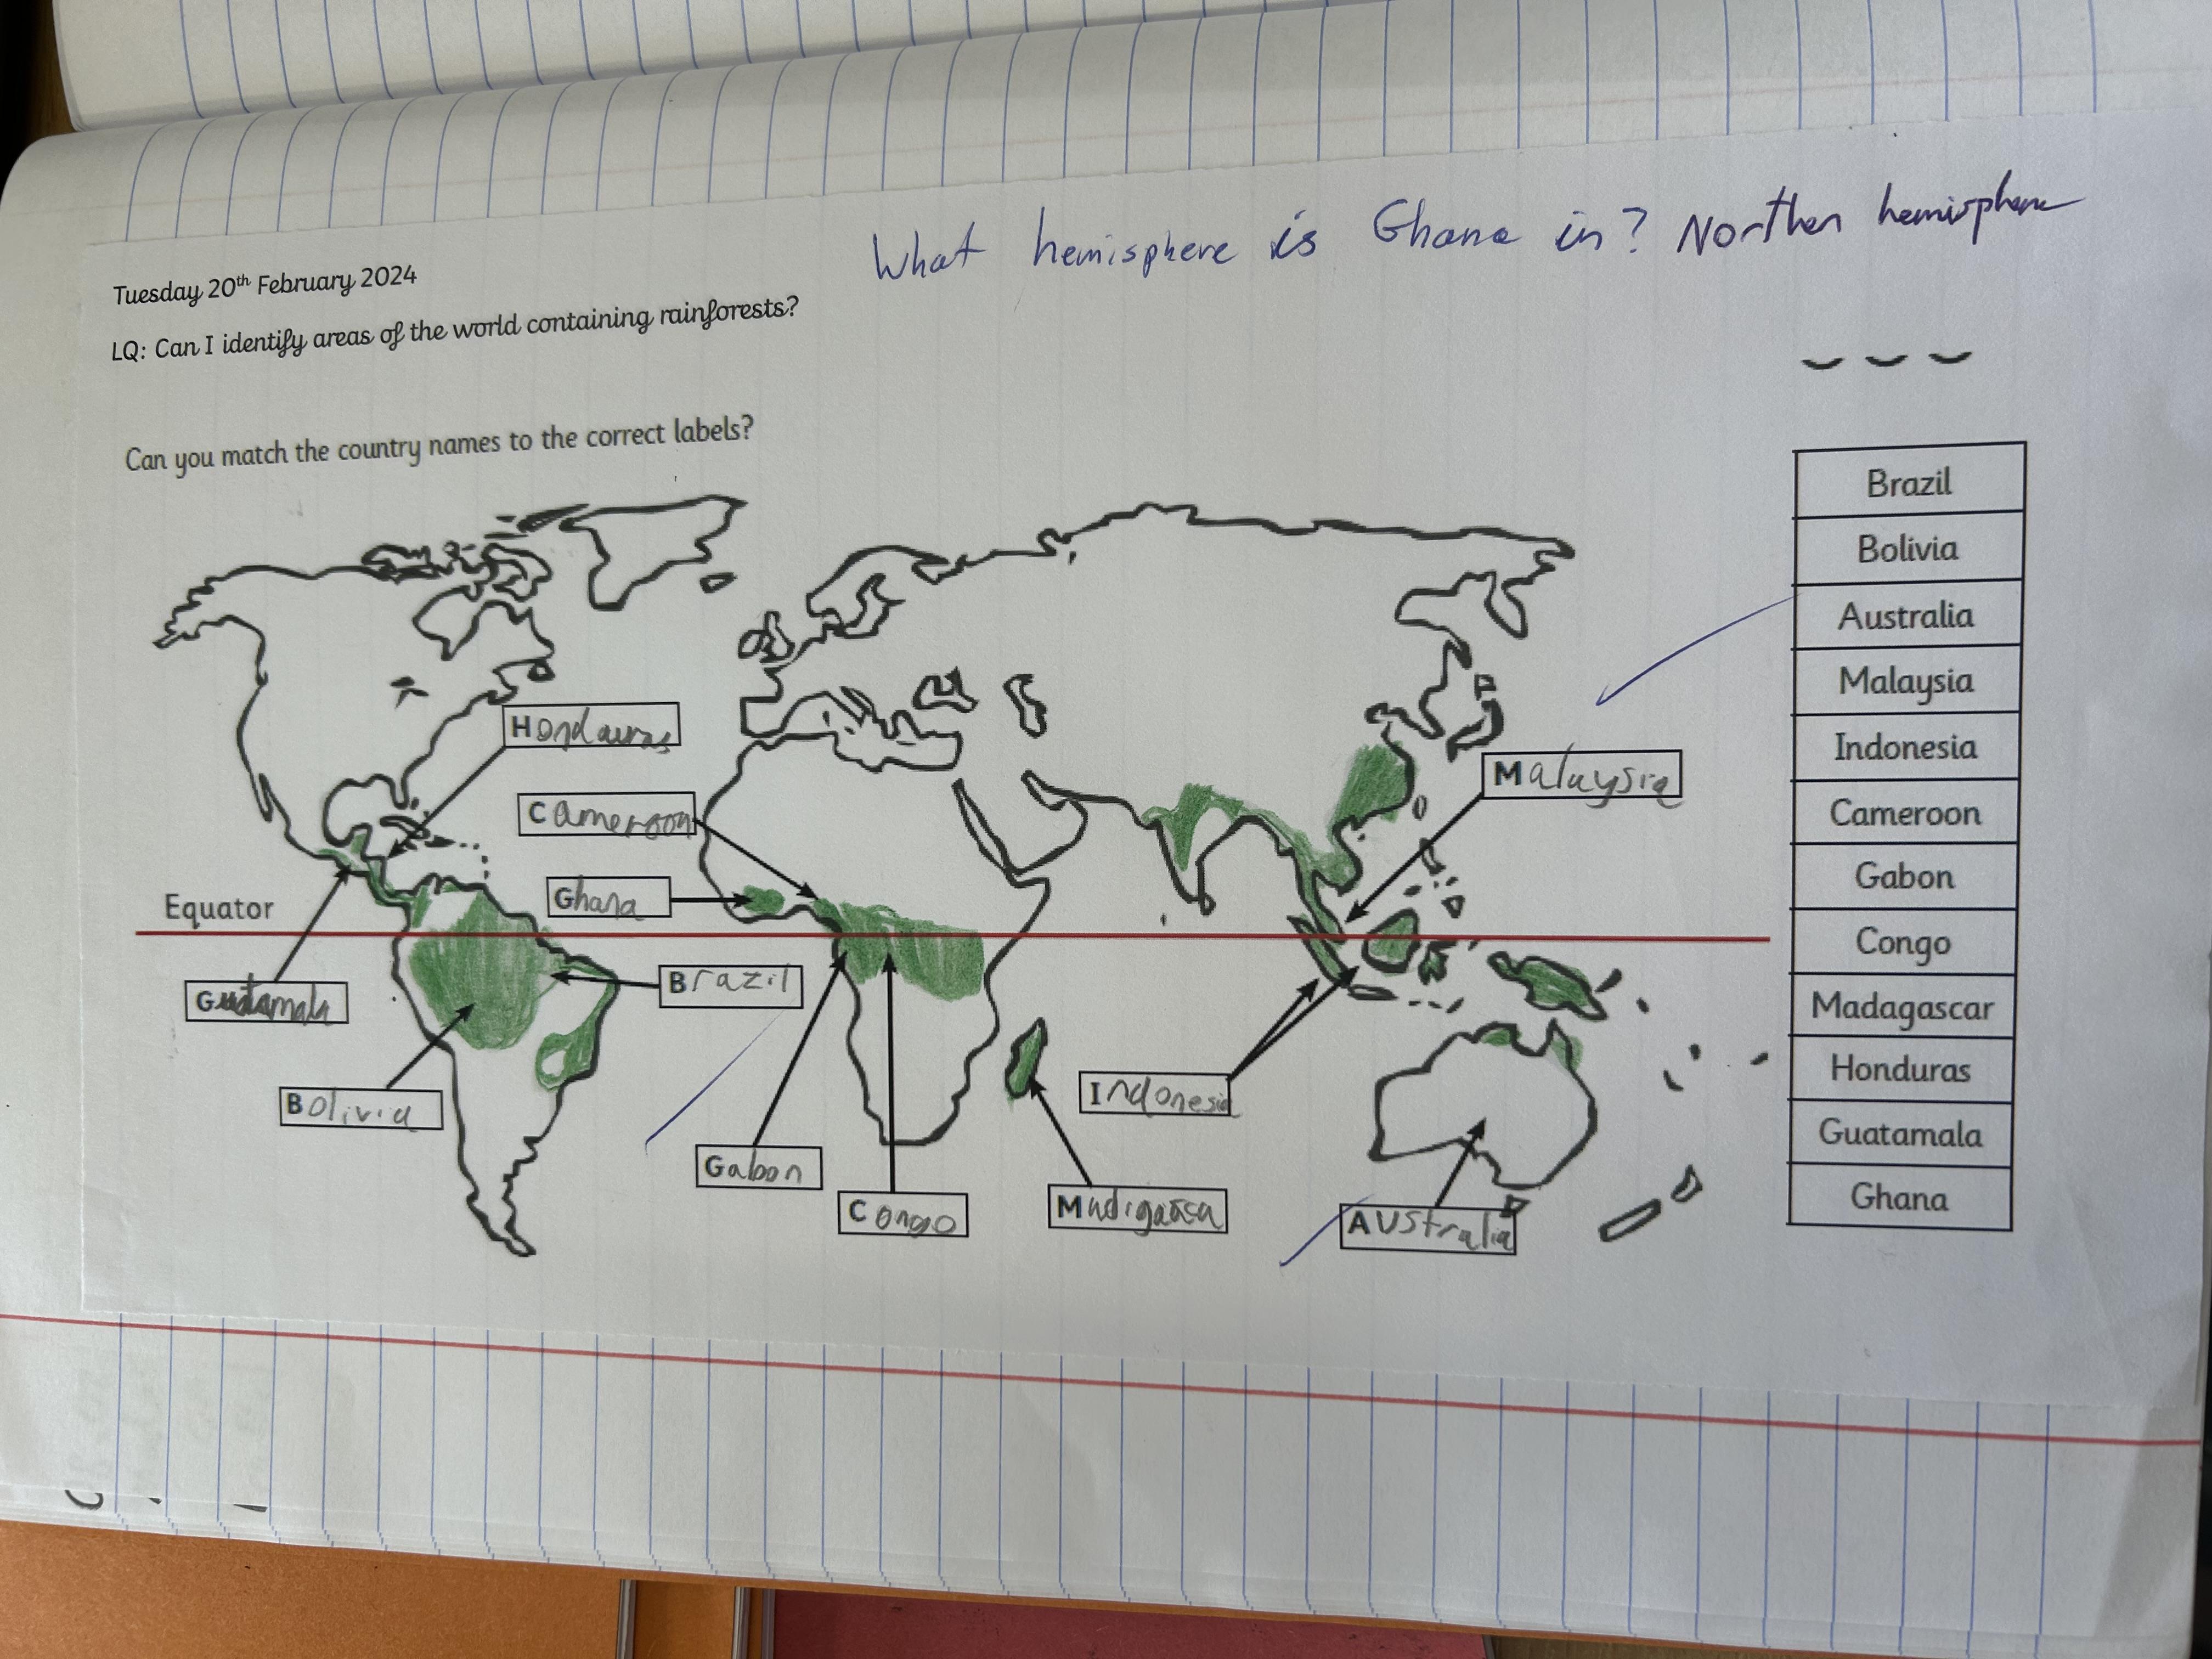 What hemisphere is Ghana in? Northen hemisphere
Tuesday 20th February 2024
LQ: Can I identify areas of the world containing rainforests?
Can you match the country names to the correct labels?
Hondauras
Cameroon
Ghana
Equator
Guatamala
Brazil
Bolivia
Gabon
Congo
Indonesia
Malaysia
Australia
Brazil
Bolivia
Australia
Malaysia
Indonesia
Cameroon
Gabon
Congo
Madagascar
Honduras
Guatamala
Ghana